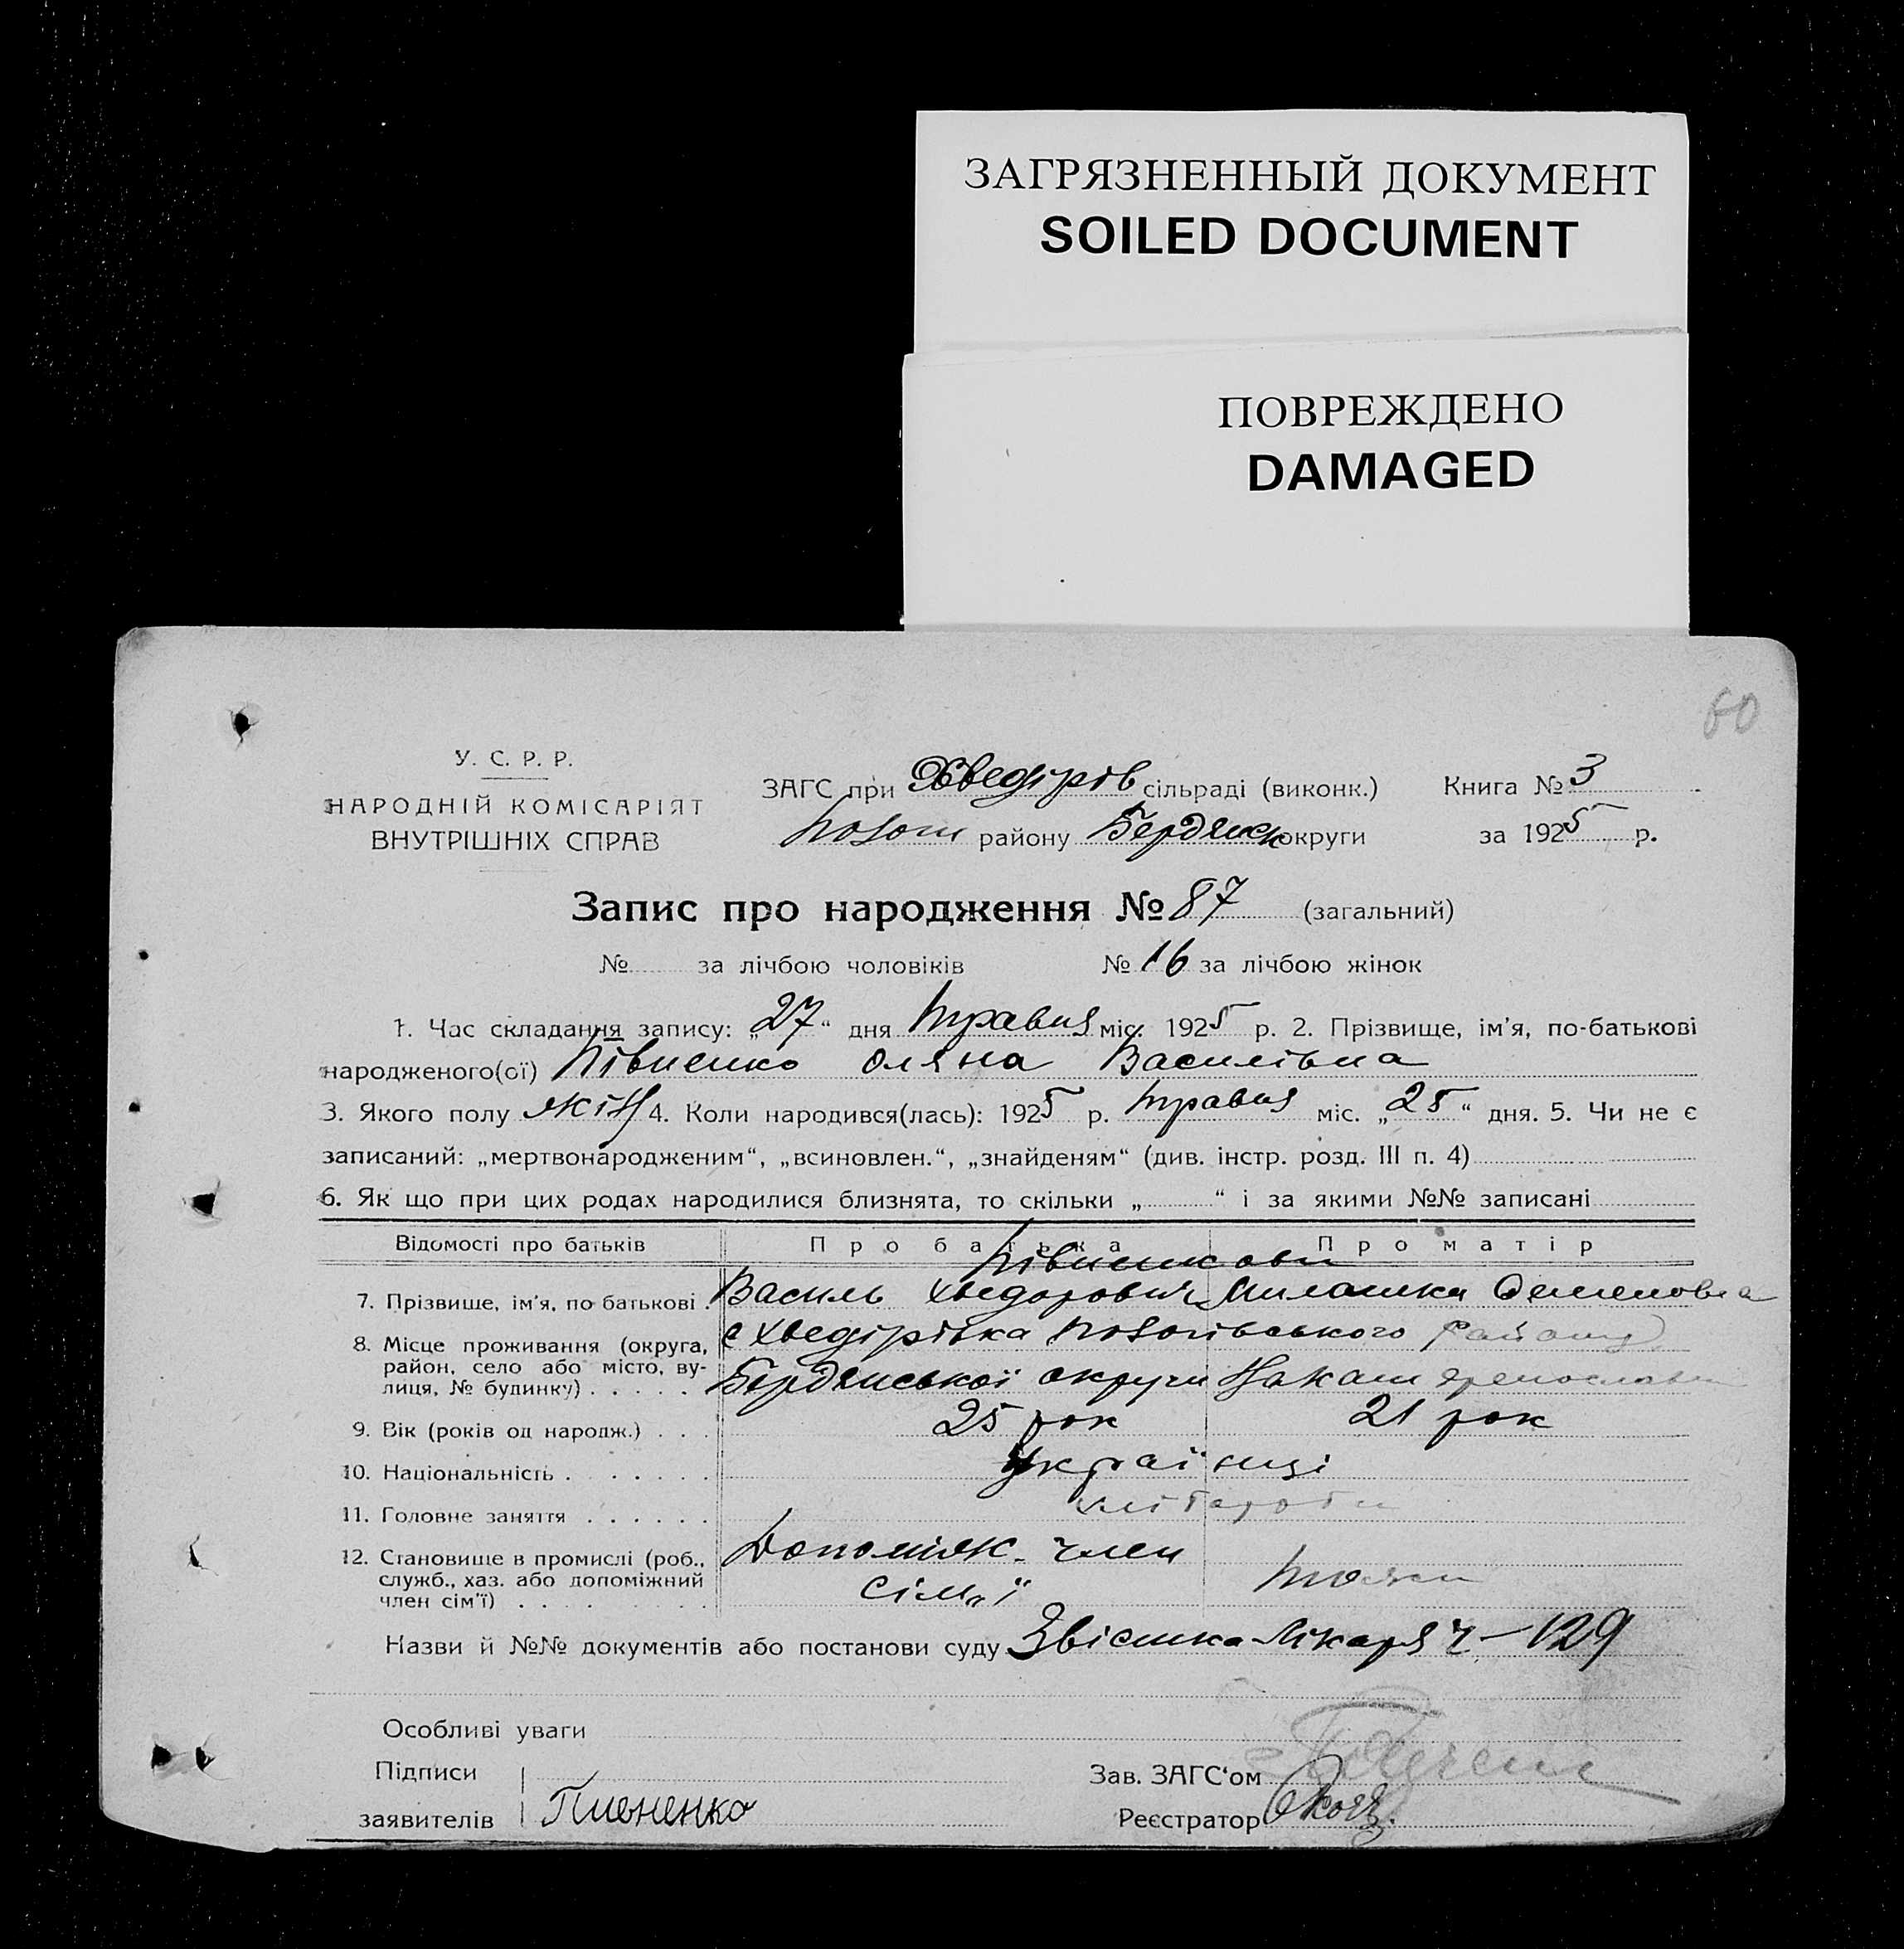 ЗАГРЯЗНЕННЫЙ ДОКУМЕНТ
SOILED DOCUMENT
ПОВРЕЖДЕНО
DAMAGED
60
У. С. Р. Р.
НАРОДНІЙ КОМІСАРІЯТ
ВНУТРІШНІХ СПРАВ
ЗАГС при Хведірів сільраді (виконк.) Книга № 3
району Бердянськ округи за 1925 р.
Запис про народження № 87 (загальний)
№ за лічбою чоловіків № 16 за лічбою жінок
1. Час складання запису: „27“ дня травня міс. 1925 р. 2. Прізвище, ім'я, по-батькові
народженого(ої) Півненко Оляна Василівна
3. Якого полу жін 4. Коли народився(лась): 1925 р. травня міс. „25“ дня. 5. Чи не є
записаний: „мертвонародженим“, „всиновлен.“, „знайденям“ (див. інстр. розд. III п. 4)
6. Як що при цих родах народилися близнята, то скільки „ “ і за якими №№ записані
Відомості про батьків Про батька Про матір
Півненкови
7. Прізвище, ім'я, по батькові Василь Хведорович Милашка Семеновна
8. Місце проживання (округа, с Хведірівка району
район, село або місто, ву-
лиця, № будинку) Бердянської округи
9. Вік (років од народж.) 25 рок 21 рок
10. Національність українці
11. Головне заняття хлібороби
12. Становище в промислі (роб., Допоміж. член
служб., хаз. або допоміжний сім'ї
член сім'ї)
Назви й №№ документів або постанови суду Звістка лікаря ч – 129
Особливі уваги
Підписи
заявителів Пивненко
Зав. ЗАГС'ом
Реєстратор